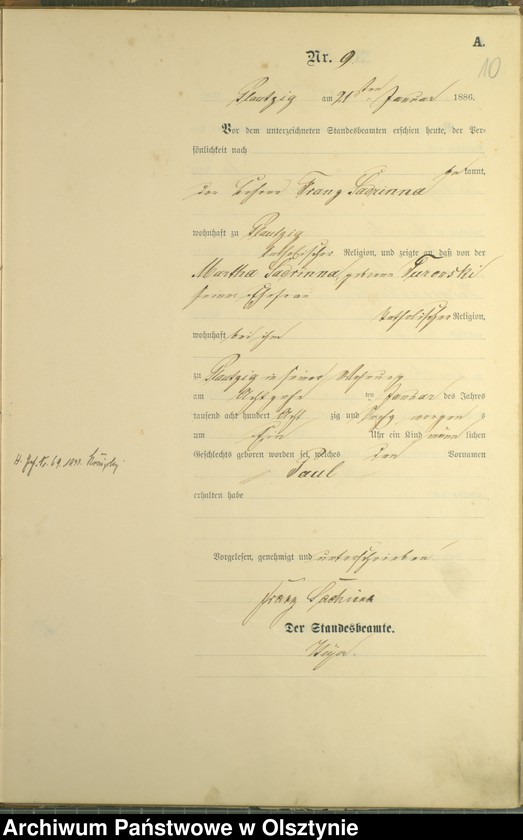 A.
10
Nr. 9
Plautzig am 21ten Januar 1886.
Vor dem unterzeichneten Standesbeamten erschien heute, der Per-
sönlichkeit nach
kannt,
der Franz Sadrinna
wohnhaft zu Plautzig
katholischer Religion, und zeigte an, daß von der
Martha Sadrinna, geborene Turowski
seiner Ehefrau
katholischer Religion,
wohnhaft bei ihm
zu Plautzig in seiner Wohnung
am Achtzehnten Januar des Jahres
tausend acht hundert Acht zig und Sechs
um Uhr ein Kind männ lichen
Geschlechts geboren worden sei, welches den Vornamen
Paul
erhalten habe
Vorgelesen, genehmigt und unterschrieben
Franz
Der Standesbeamte.
Archiwum Państwowe w Olsztynie